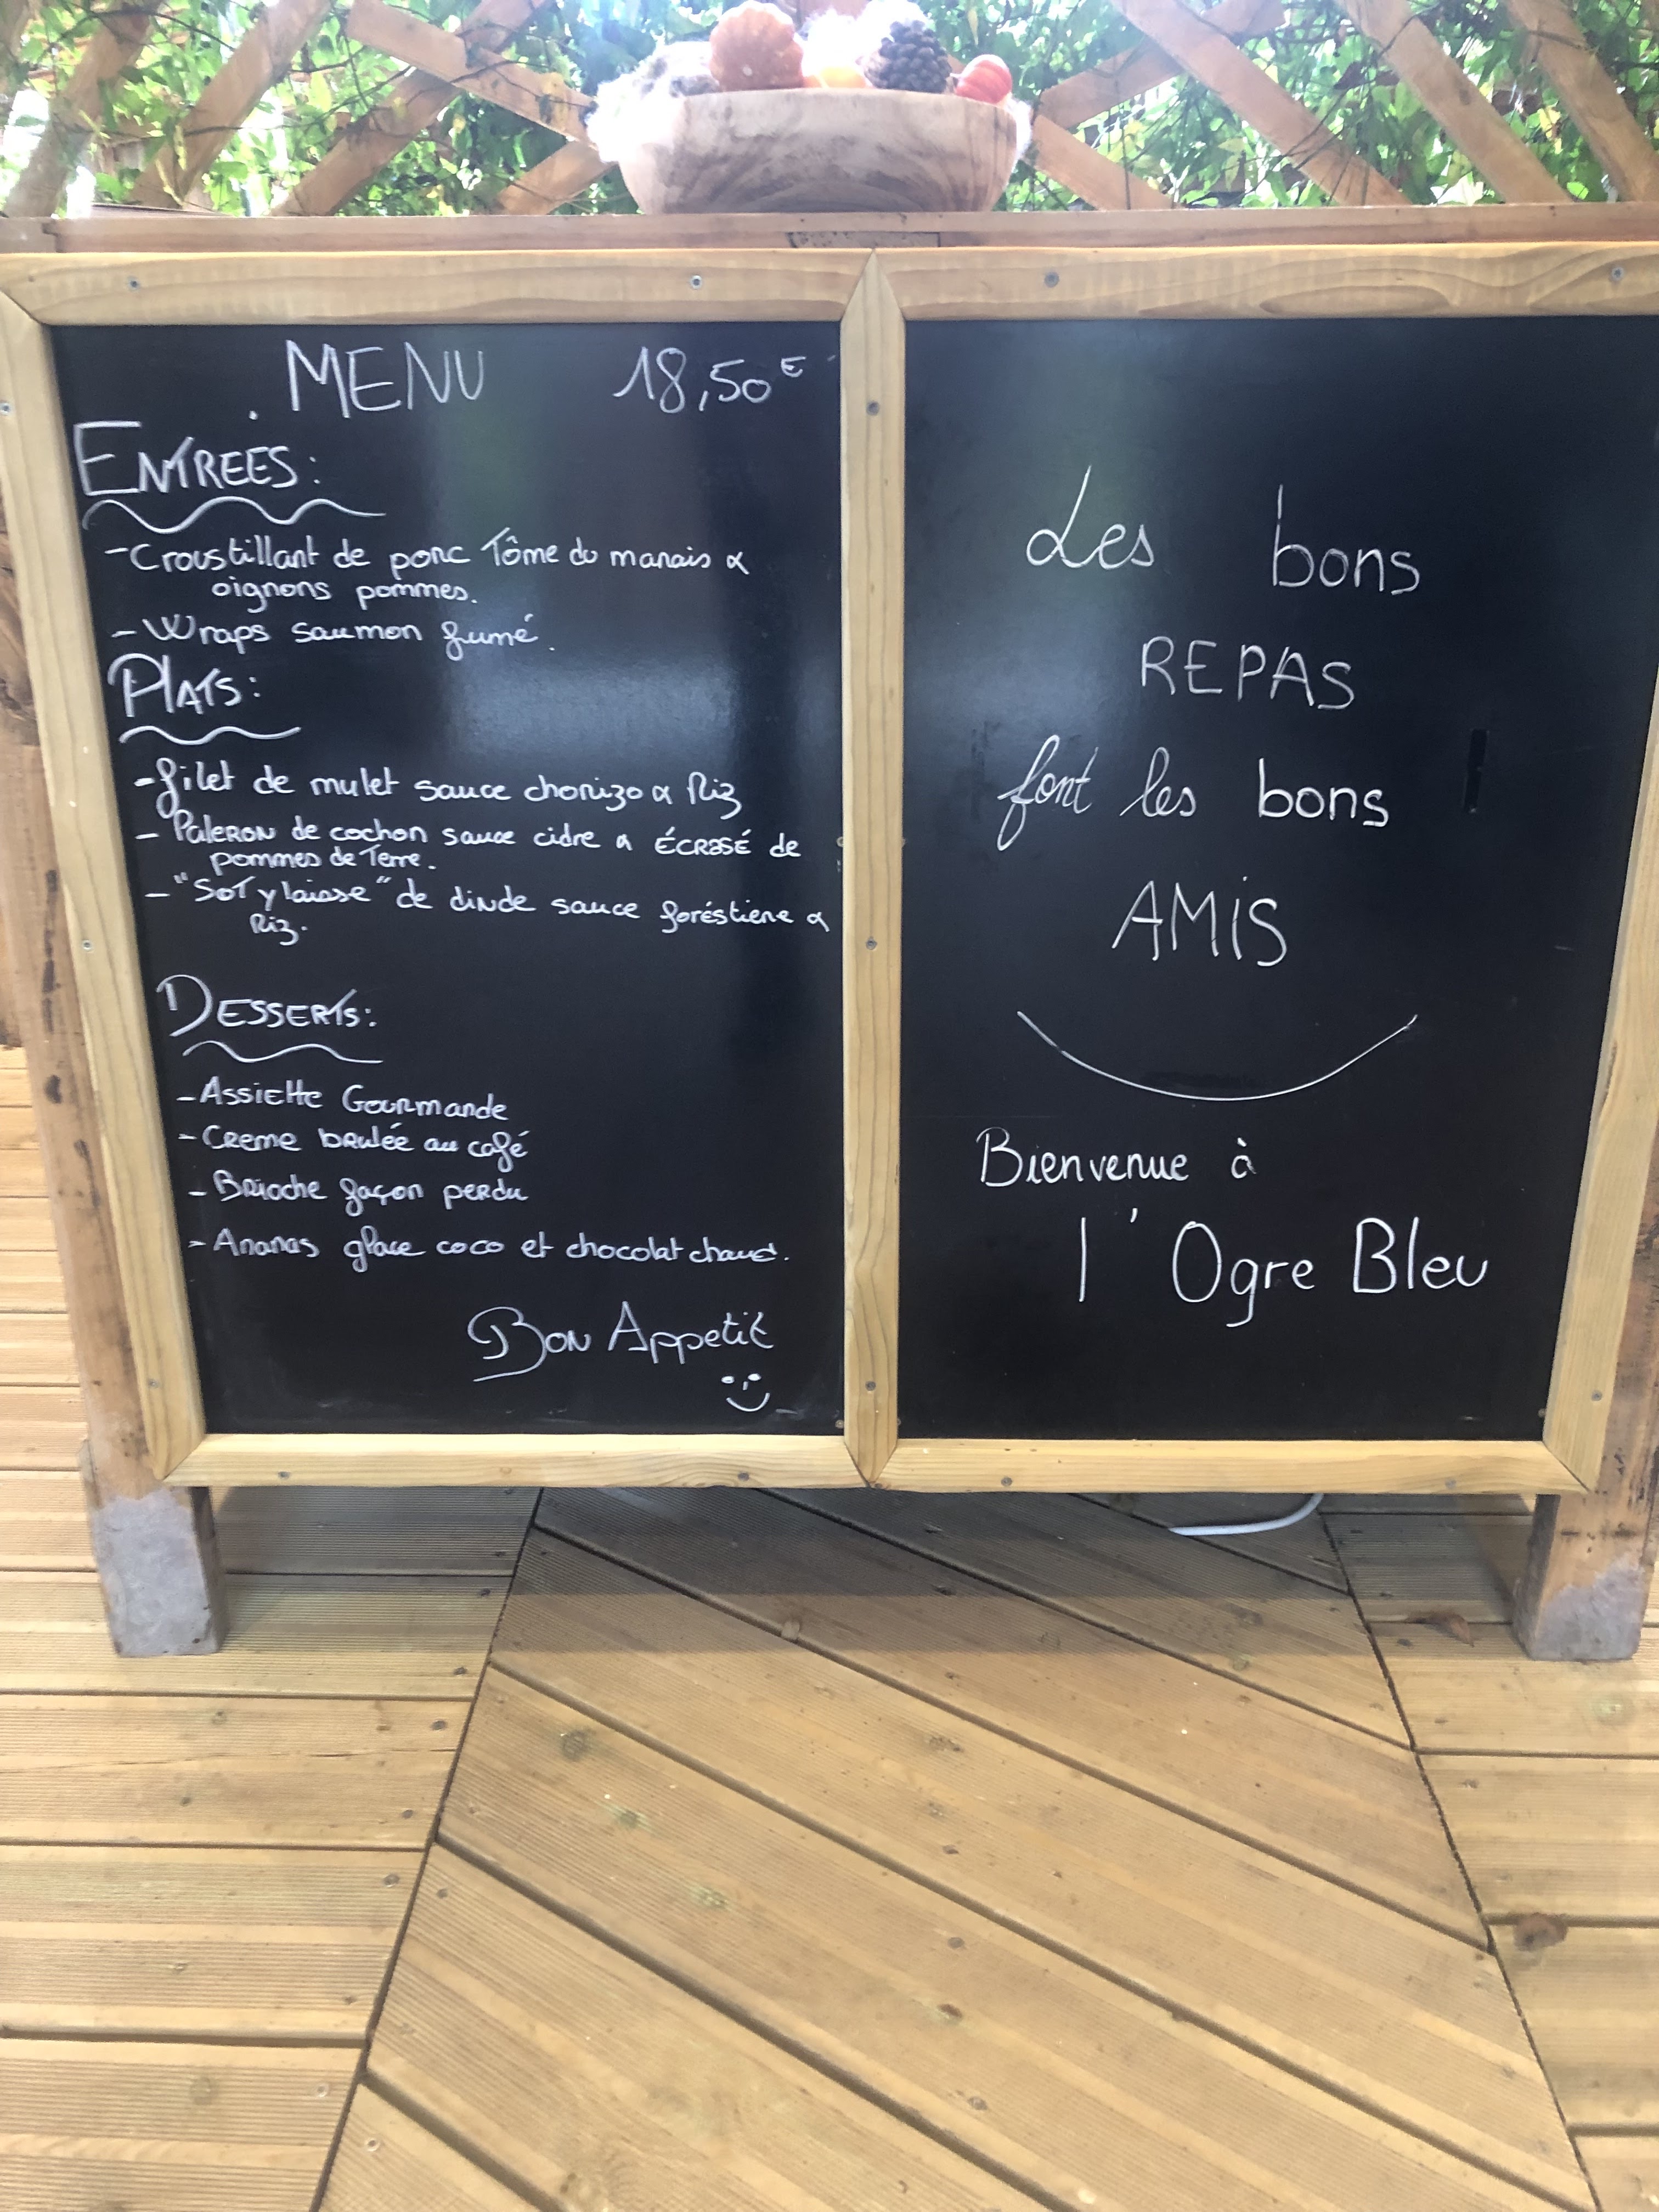 MENU 18,50€
ENTREES:
- Croustillant de porc Tôme du marais &
oignons pommes.
- Wraps saumon fumé.
PLATS:
- filet de mulet sauce chorizo & Riz
- Paleron de cochon sauce cidre & ÉCRASÉ de
pommes de Terre.
- "Sot y laisse" de dinde sauce foréstiere &
Riz.
DESSERTS:
- Assiette Gourmande
- Creme brulée au café
- Brioche façon perdu
- Ananas glace coco et chocolat chaud.
Bon Appetit
Les bons
REPAS
font les bons
AMIS
Bienvenue à
l'Ogre Bleu